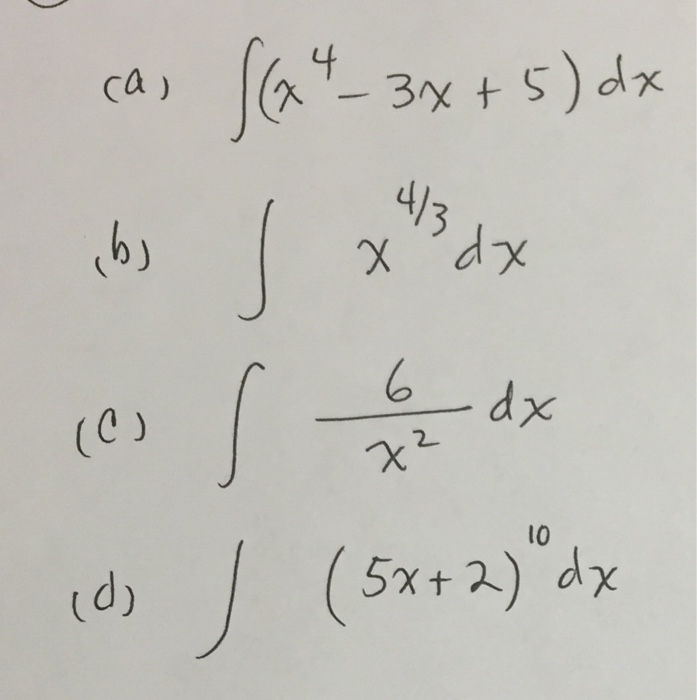 (a) ∫(x⁴ - 3x + 5) dx
(b) ∫ x^{4/3} dx
(c) ∫ \frac{6}{x²} dx
(d) ∫ (5x + 2)¹⁰ dx